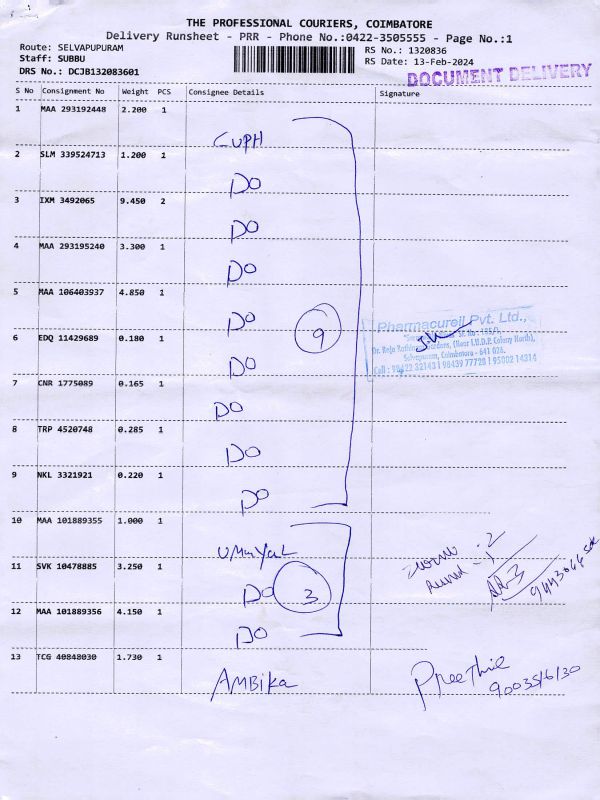 THE PROFESSIONAL COURIERS, COIMBATORE
Delivery Runsheet - PRR - Phone No.:0422-3505555 - Page No.:1
Route: SELVAPUPURAM
Staff: SUBBU
DRS No.: DCJB132083601
RS No.: 1320836
RS Date: 13-Feb-2024
DOCUMENT DELIVERY
S No Consignment No Weight PCS Consignee Details Signature
1 MAA 293192448 2.200 1
CUPH
2 SLM 339524713 1.200 1
DO
3 IXM 3492065 9.450 2
DO
4 MAA 293195240 3.300 1
DO
5 MAA 106403937 4.850 1
DO
9
Pharmacureil Pvt. Ltd.,
Dr. Raja Rathinam Gardens, (Near T.U.D.P. Colony North),
Selvapuram, Coimbatore - 641 026.
Cell : 98422 32143 | 98439 77728 | 95002 14314
6 EDQ 11429689 0.180 1
DO
7 CNR 1775089 0.165 1
DO
8 TRP 4520748 0.285 1
DO
9 NKL 3321921 0.220 1
DO
10 MAA 101889355 1.000 1
UMAYAL
11 SVK 10478885 3.250 1
DO 3
12 MAA 101889356 4.150 1
DO
13 TCG 40848030 1.730 1
AMBIKA
Preethie